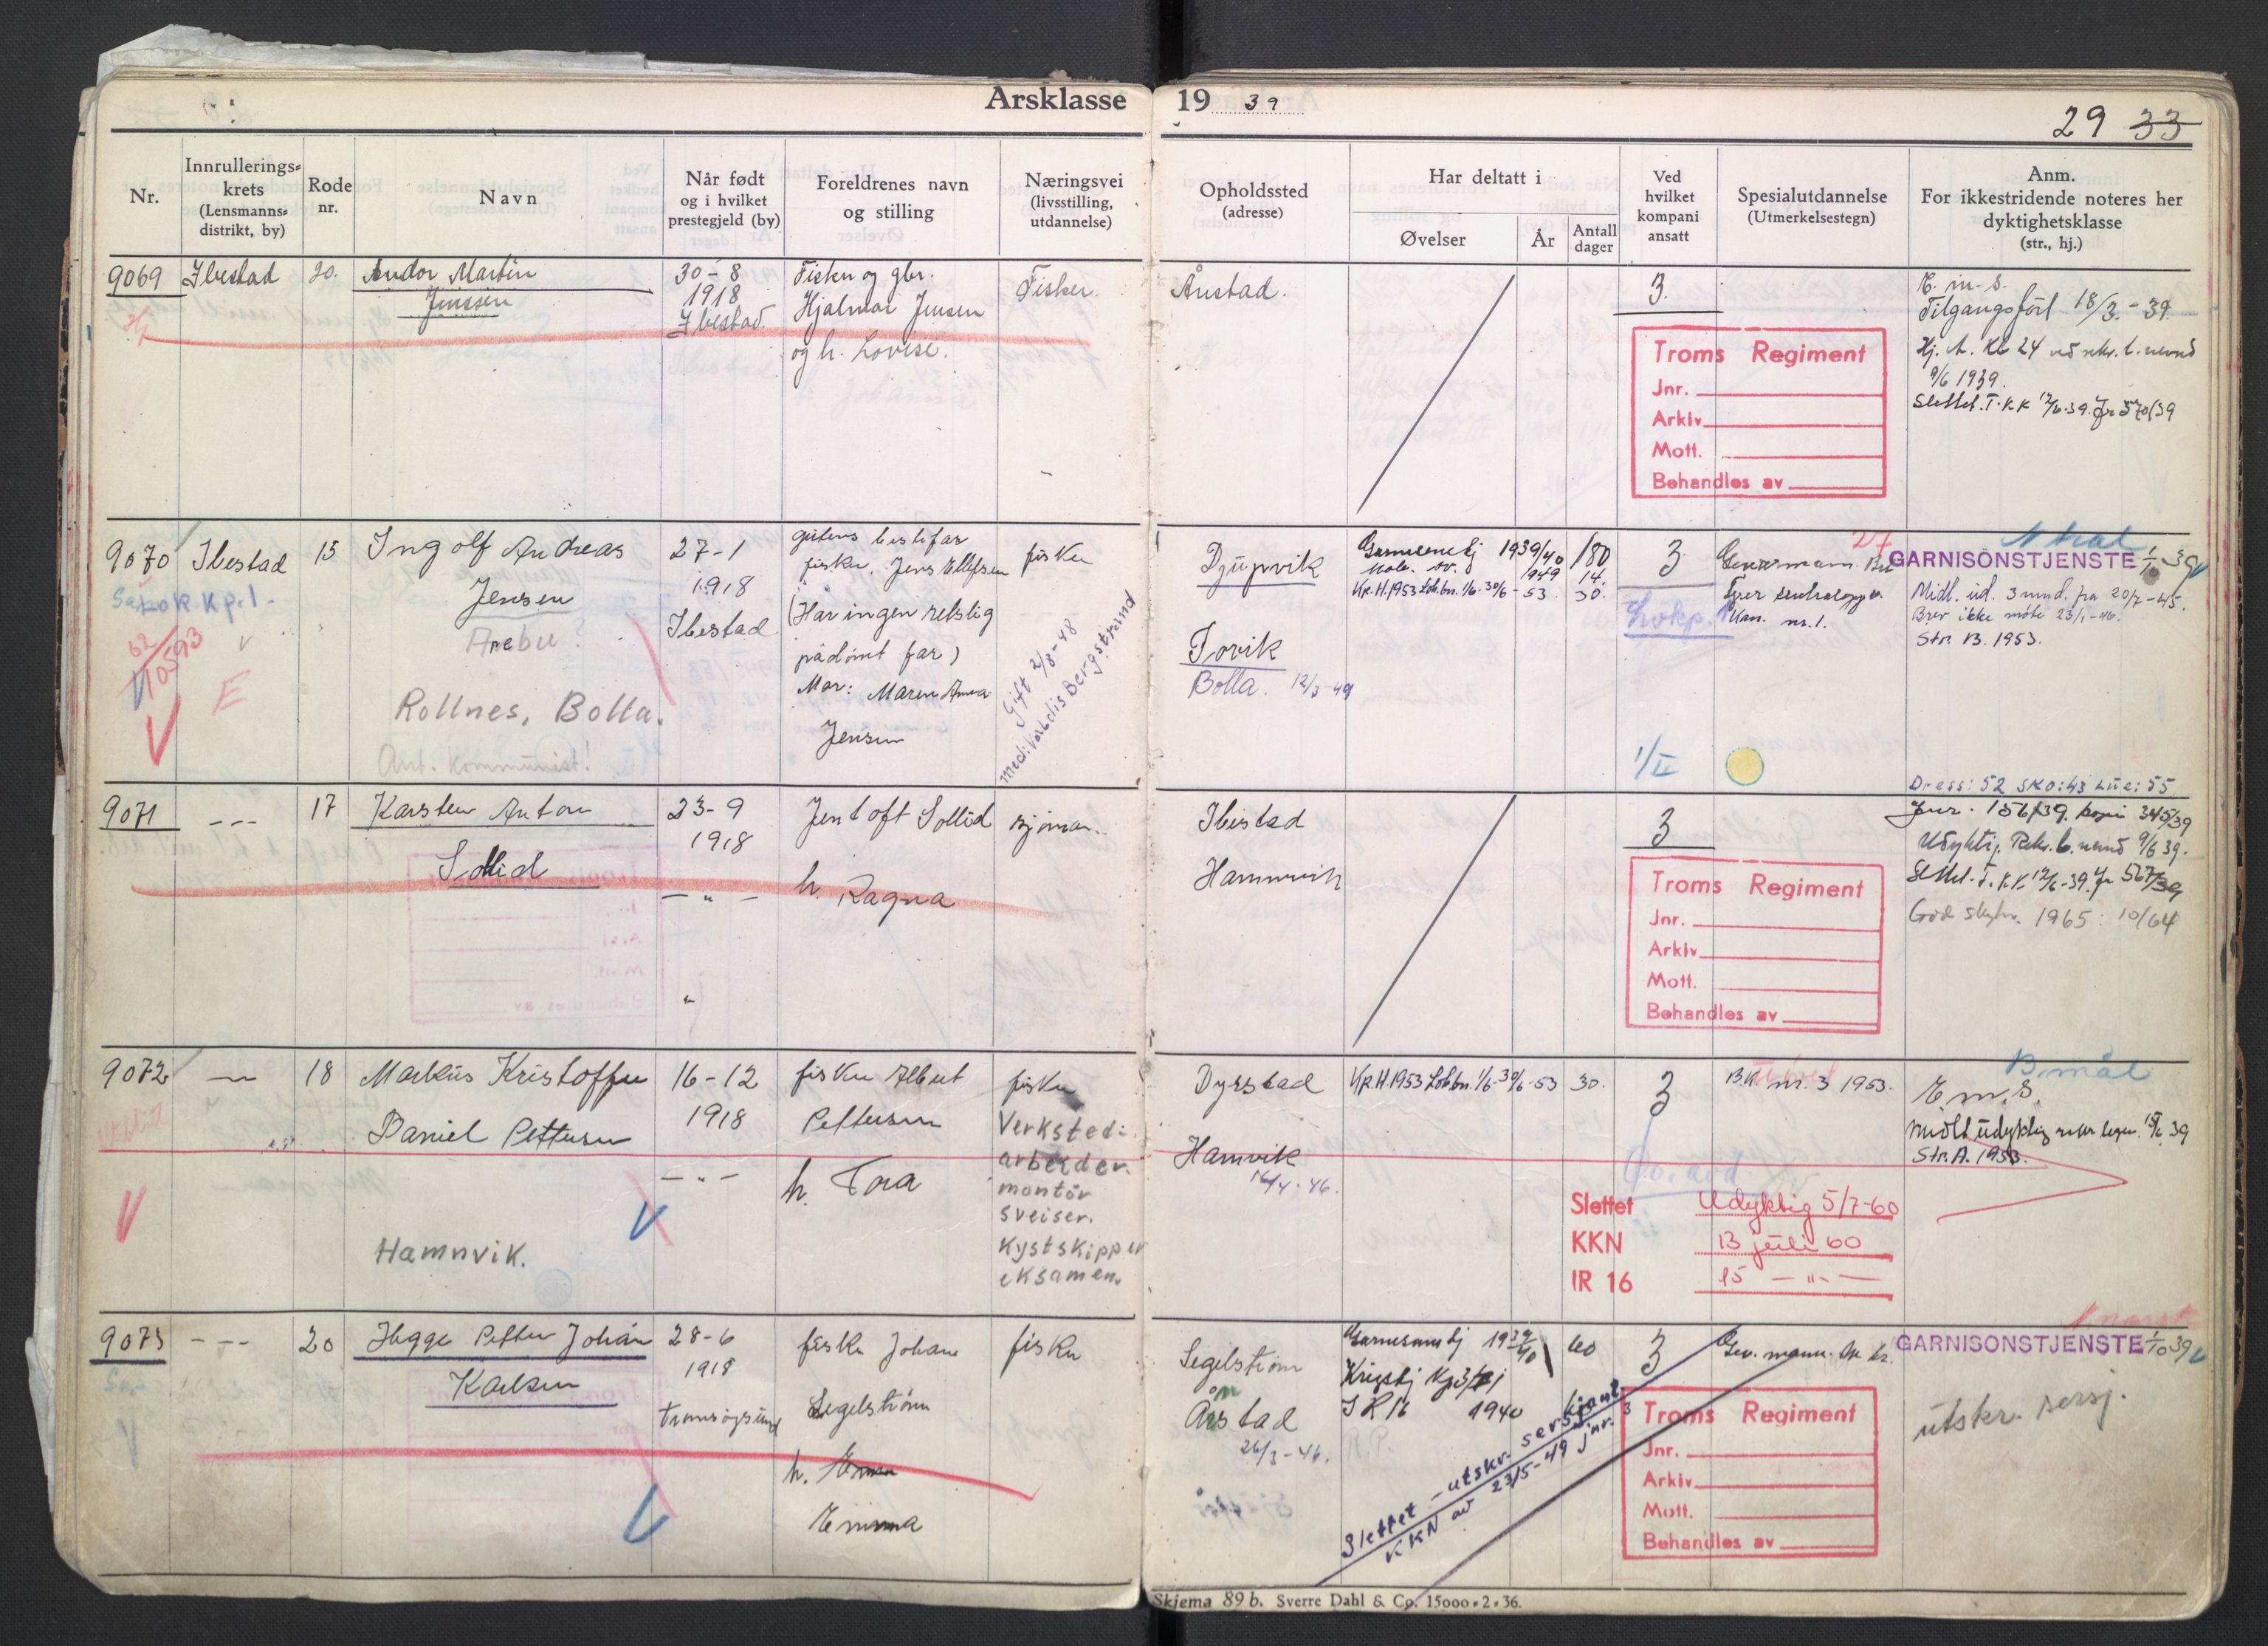 Årsklasse 19 39
29 33
Nr.
Innrullerings-
krets
(Lensmanns-
distrikt, by)
Rode
nr.
Navn
Når født
og i hvilket
prestegjeld (by)
Foreldrenes navn
og stilling
Næringsvei
(livsstilling,
utdannelse)
Opholdssted
(adresse)
Har deltatt i
Øvelser
År
Antall
dager
Ved
hvilket
kompani
ansatt
Spesialutdannelse
(Utmerkelsestegn)
Anm.
For ikkestridende noteres her
dyktighetsklasse
(str., hj.)
9069
Ibestad
20.
Andor Martin
Jenssen
30-8
1918
Ibestad
Fisker og gbr.
Hjalmar Jensen
og h. Lovise.
Fisker.
Hj
Ånstad.
3.
Troms Regiment
Jnr.
Arkiv
Mott.
Behandles av
E. m. s.
Tilgangsført 18/3.-39
Hj. A. Kl 24 ved rekr. b. nevnd
9/6 1939.
Slettet. T.K.K 12/6-39. Jr 570/39
9070
Ibestad
15
Ingolf Andreas
Jensen
Arebu?
Rollnes, Bolla.
Ant. Kommunist!
Lok.kp.1.
62
10593
E
27-1
1918
Ibestad
gutens bestefar
fisker. Jens Ellefsen
(Har ingen retslig
pådømt far)
Mor: Maren Anna
Jensen
fisker
Gift 2/8-48
med: Valdis Bergstrand
Djupvik
Torvik
Bolla. 12/3-49
Garnisonstj 1939/40 180
Mob. øv. 1949 14.
Kp.H.1953 Lok.bn. 1/6-30/6-53. 30.
3
Lokp. 1
1/II
Geværmann. Br
Fører
Kan. nr. 1.
GARNISONSTJENSTE 1/10 39
Midl. ud. 3 mnd. fra 20/7-45.
Brev ikke møte 23/1-46.
Str. B. 1953.
Dress: 52 Sko: 43 Lue: 55
9071
---
17
Karsten Anton
Sollid
23-9
1918
- " -
Jentoft Sollid
h. Ragna
sjøman.
Ibestad
Hamnvik
3
Troms Regiment
Jnr.
Arkiv
Mott.
Behandles av
Jnr. 156/39. kopi 345/39
Udyktig. Rekr. b. nevnd 9/6 39.
Slettet. T.K.K. 12/6-39. Jr 567/39
God skytn. 1965: 10/64
9072
18
Markus Kristoffer
Daniel Pettersen
Hamnvik.
16-12
1918
- " -
fisker Albert
Pettersen
h. Tora
fisker
Verksted-
arbeider.
montør
sveiser.
Kystskipper
eksamen.
Dyrstad
Hamvik
16/4-46.
Kp.H.1953 Lok.bn. 1/6-30/6-53 30.
3
B.K nr. 3 1953.
B.mål
E. m. S.
Midlt udyktig
Str.A. 1953.
Slettet Udyktig 5/7-60
KKN 13 juli 60
IR 16 15 - " -
9073
---
20
Hegge Petter Johan
Karlsen
28-6
1918
Tranøysund
fisker Johan
Segelstrøm
h. Emma
Emma
fisker
Segelstrøm
Ånstad
26/3-46.
Garnisonstj 1939/40 60
Krigstj Kp3/
IR 16 1940
Slettet - utskr. sersjant
KKN av 23/5-49 jnr. 3
3
Gev. mann.
Troms Regiment
Jnr.
Arkiv
Mott.
Behandles av
GARNISONSTJENSTE 1/10 39
utskr. sersj.
Skjema 89 b. Sverre Dahl & Co. 15000-2-36.